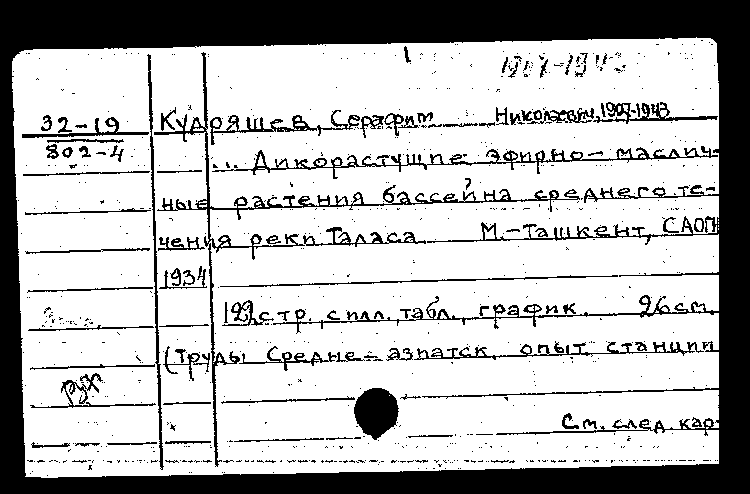 1907-1943
32-19 Кудряшев, Серафим Николаевич, 1907-1943
802-4 ... Дикорастущие эфирно-маслич-
ные растения бассейна среднего те-
чения реки Таласа М.-Ташкент, САОГИ
1934
122 стр., с илл., табл., график. 26 см.
(Труды Средне-азиатск. опыт. станции
рух
См. след. кар-